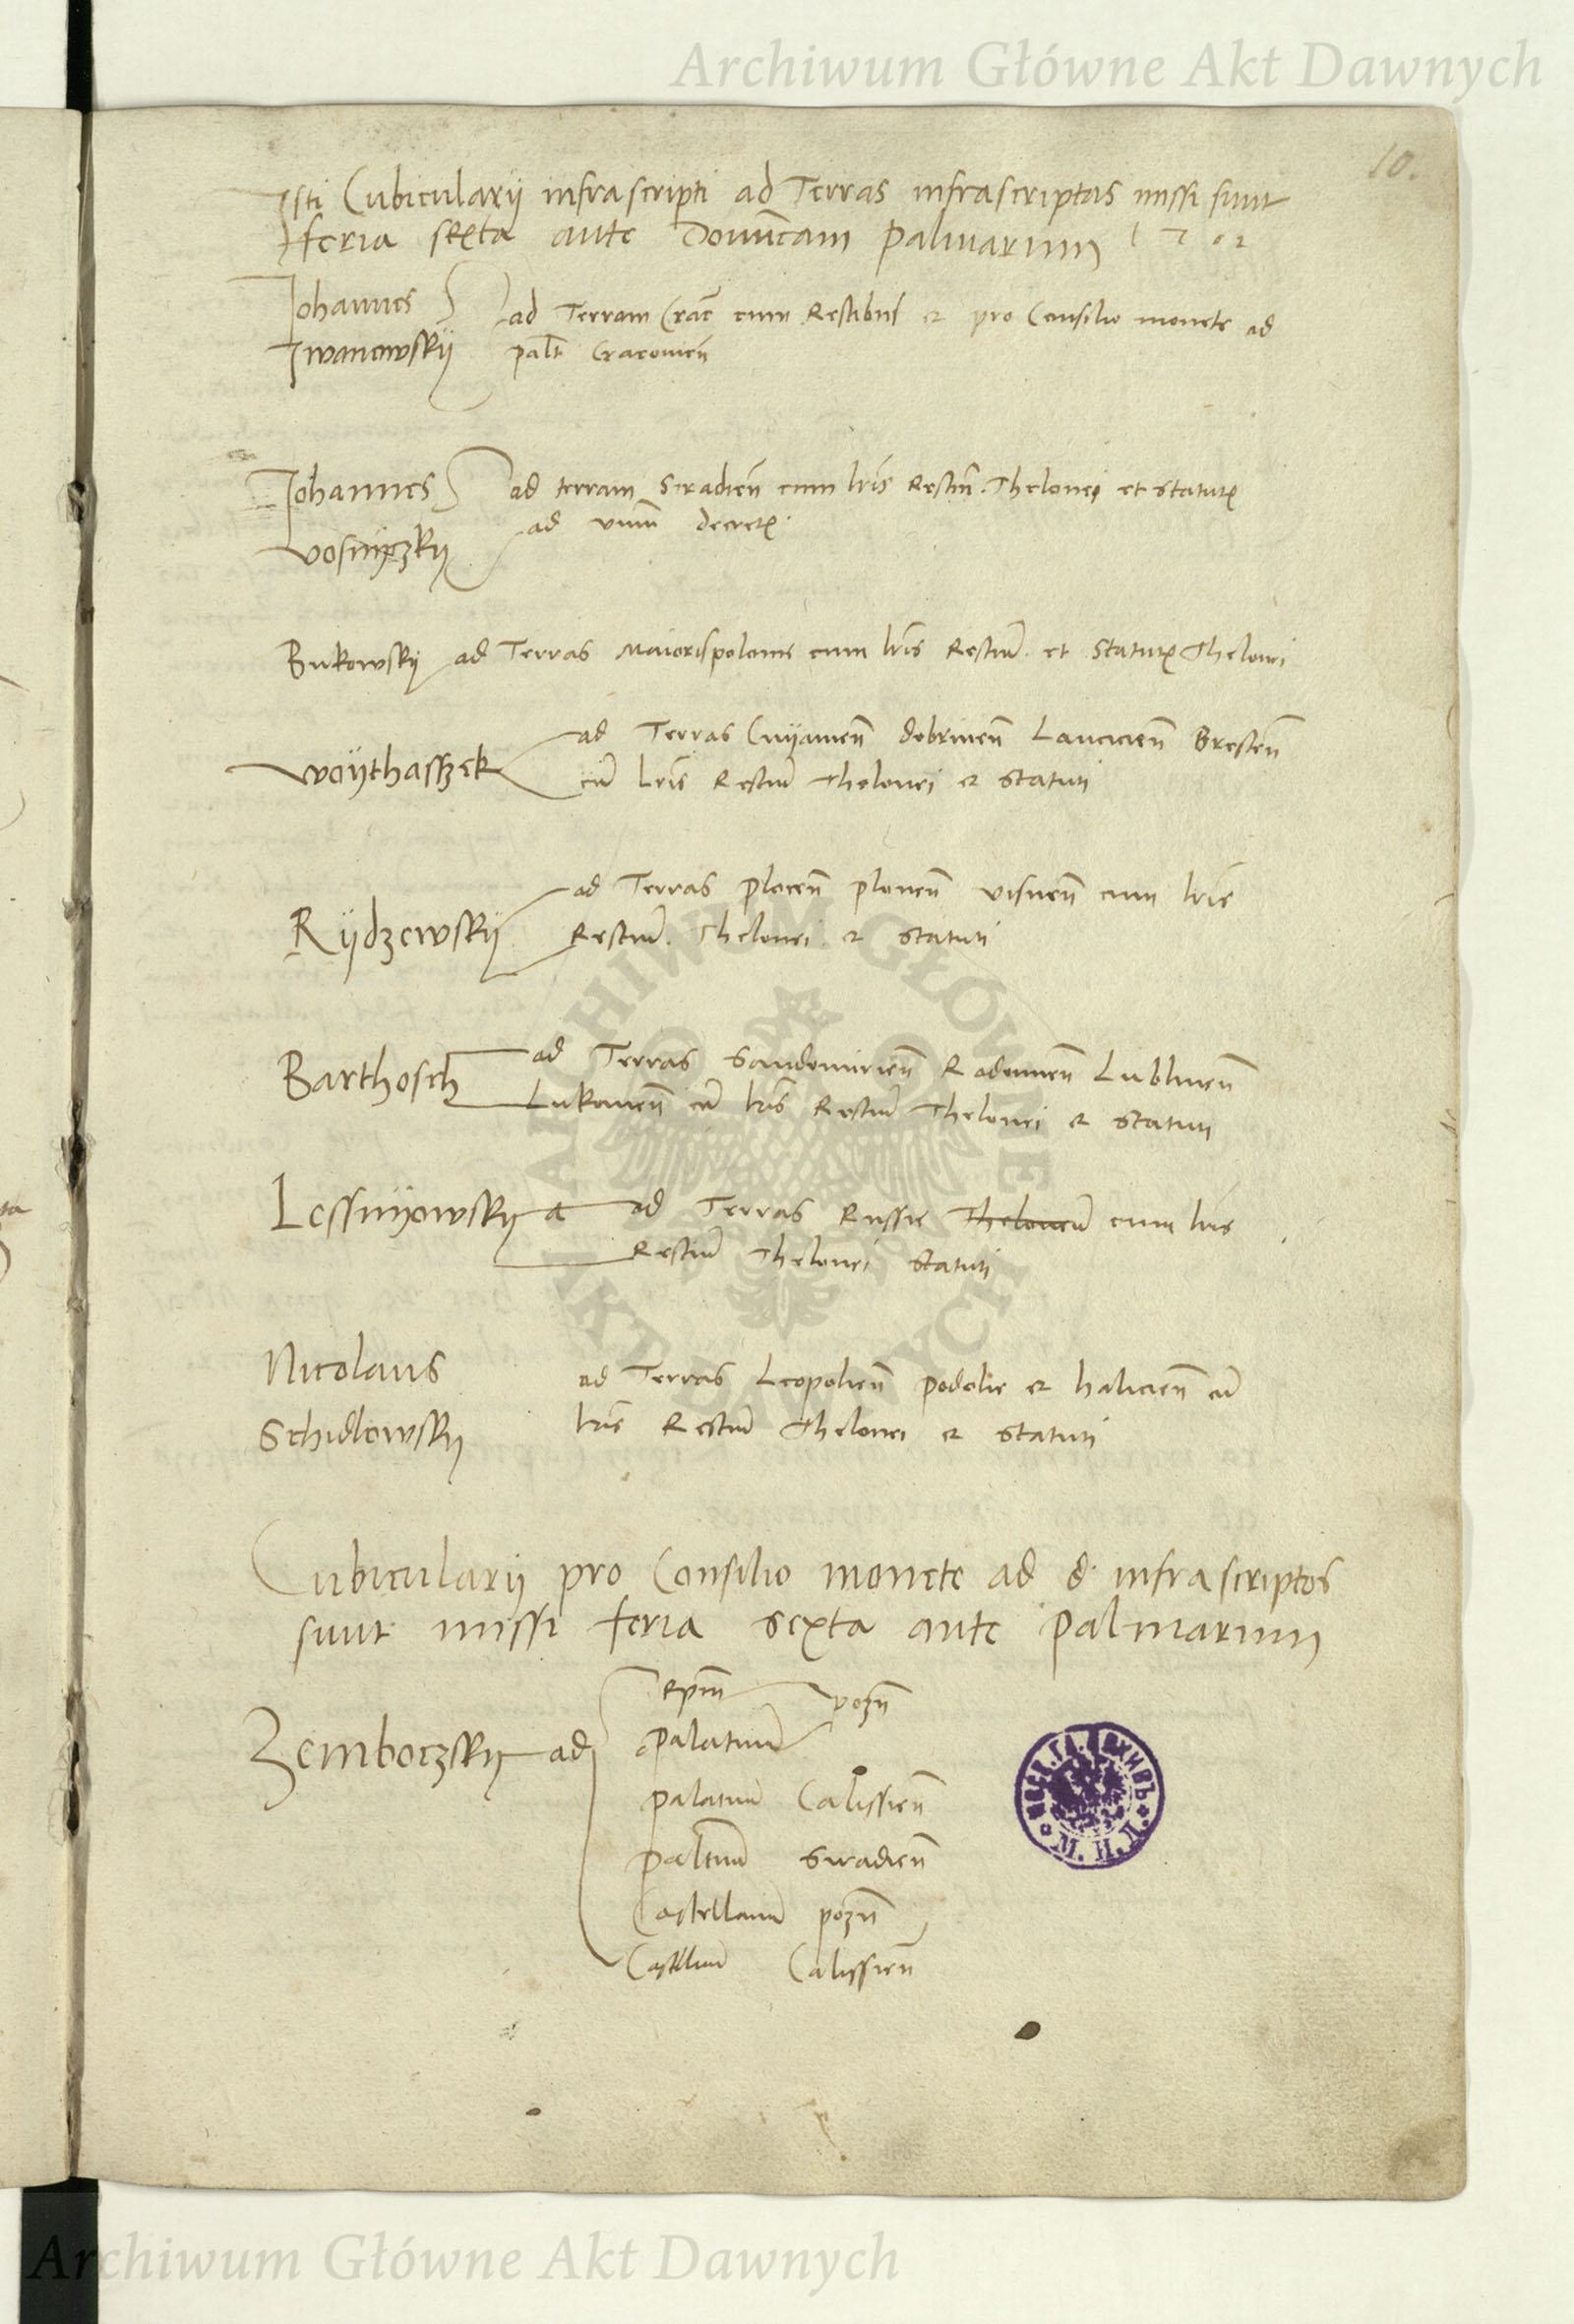 Archiwum Główne Akt Dawnych
10.
Isti Cubicularii infrascripti ad Terras infrascriptas missi sunt
feria sexta ante Dominicam palmarum
Johannes
Iwanowskij
ad Terram Crac cum Restibus et pro Consilio monete ad
palt Cracovien
Johannes
Vosnijczkij
ad terram Siradien cum lris Thelonei et statut
ad decret
Bukowskij ad Terras Maiorispolonie cum lris Restium et Statut Thelonei
Woijthasszek
ad Terras Cuijavien dobrinen Lancicien Bresten
cum lris Restium Thelonei et statuti
Rijdzewskij
ad Terras plocen plonen visnen cum lris
Restium Thelonei et statuti
Barthosch
ad Terras Sandomirien Radomien Lublinen
Lukovien cum lris Restium Thelonei et statuti
Lessnijowskij ad Terras Russie Theloneum cum lris
Restium Thelonei statuti
Nicolaus
Schidlowskij
ad Terras Leopolien podolie et halicien cum
lris Restium Thelonei et statuti
Cubicularii pro Consilio monete ad d. infrascriptos
sunt missi feria sexta ante palmarum
Zemboczskij ad
Epm
pozn
palatinum
palatinum Calissien
paltinum Siradien
Castellanum pozn
Castellanum Calissien
ARCHIWUM GŁÓWNE AKT DAWNYCH
Archiwum Główne Akt Dawnych